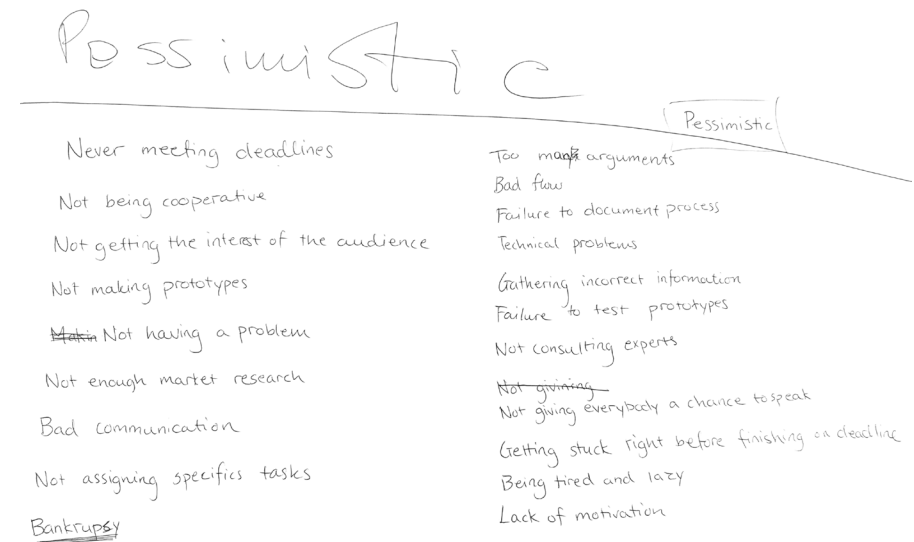 Pessimistic
Never meeting deadlines
Not being cooperative
Not getting the interest of the audience
Not making prototypes
Makin Not having a problem
Not enough market research
Bad communication
Not assigning specifics tasks
Bankrupsy
Pessimistic
Too many arguments
Bad flow
Failure to document process
Technical problems
Gathering incorrect information
Failure to test prototypes
Not consulting experts
Not givining
Not giving everybody a chance to speak
Getting stuck right before finishing on deadline
Being tired and lazy
Lack of motivation